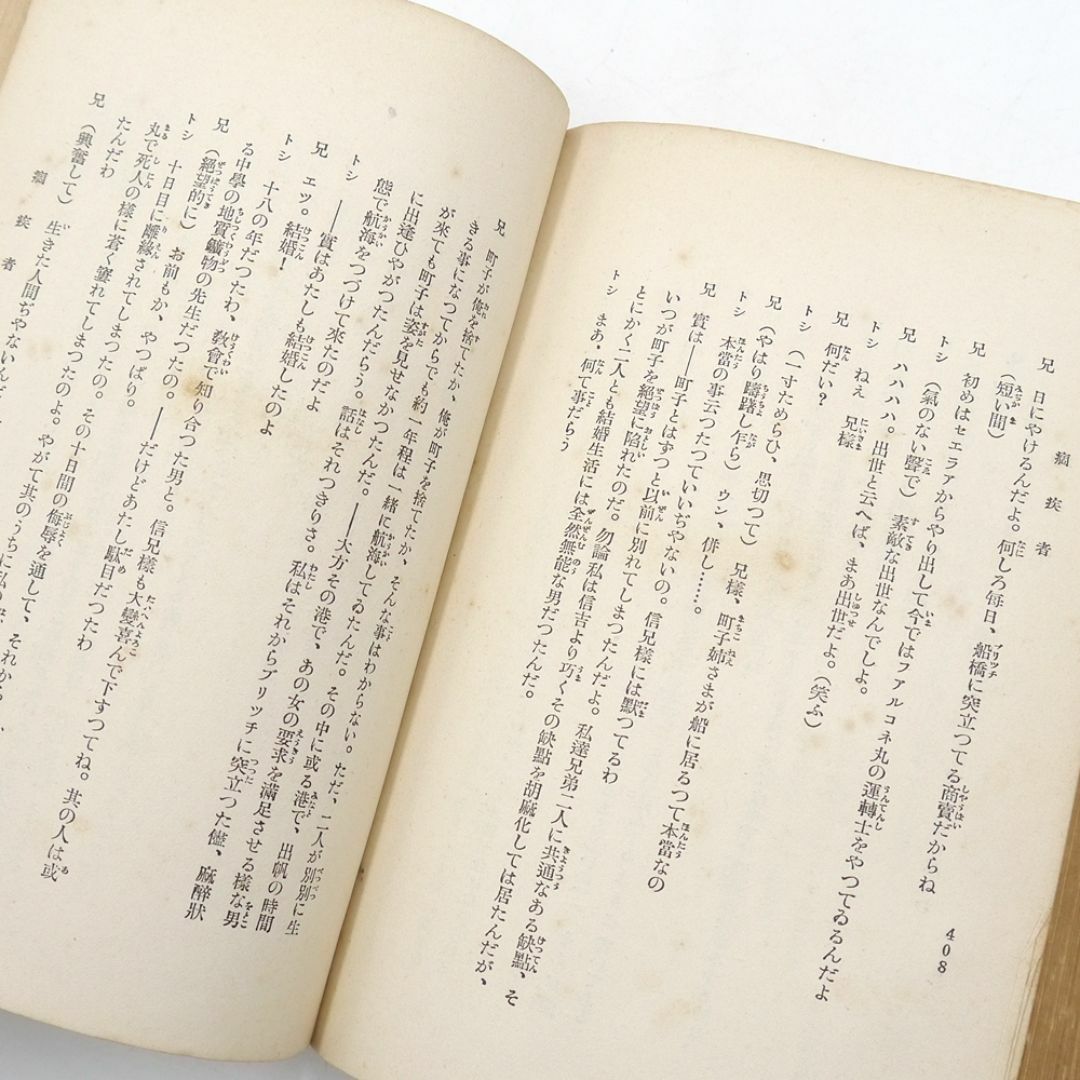 癈疾者
408
兄 日にやけるんだよ。何しろ每日、船橋に突立つてる商賣だからね
(短い間)
兄 初めはセエラアからやり出して今ではファルコネ丸の運轉士をやつてゐるんだよ
トシ (氣のない聲で) 素敵な出世なんでしよ。
兄 ハハハハ。出世と云へば、まあ出世だよ。(笑ふ)
トシ ねえ 兄樣
兄 何だい?
トシ (一寸ためらひ、思切つて) 兄樣、町子姉さまが船に居るつて本當なの
兄 (やはり躊躇し乍ら) ウン、併し……。
トシ 本當の事云つたつていいぢやないの。信兄樣には默つてるわ
兄 實は――町子とはずつと以前に別れてしまつたんだよ。私達兄弟二人に共通なある缺點、そ
いつが町子を絕望に陷れたのだ。勿論私は信吉より巧くその缺點を胡麻化しては居たんだが、
とにかく二人とも結婚生活には全然無能な男だつたんだ。
トシ まあ、何て事だらう
兄 町子が俺を捨てたか、俺が町子を捨てたか、そんな事はわからない。ただ、二人が別別に生
きる事になつてからでも約一年程は一緖に航海してるたんだ。その中に或る港で、出帆の時間
が來ても町子は姿を見せなかつたんだ。――大方その港で、あの女の要求を滿足させる樣な男
に出逢ひやがつたんだらう。話はそれつきりさ。私はそれからブリッチに突立つた儘、麻醉狀
態で航海をつづけて來たのだよ
トシ ――實はあたしも結婚したのよ
兄 エツ。結婚!
トシ 十八の年だつたわ、敎會で知り合つた男と。信兄樣も大變喜んで下すつてね。其の人は或
る中學の地質鑛物の先生だつたの。――だけどあたし駄目だつたわ
兄 (絕望的に) お前もか、やつぱり。
トシ 十日目に離緣されてしまつたの。その十日間の侮辱を通して、
丸で死人の樣に蒼く窶れてしまつたのよ。やがて其のうちに
たんだわ
兄 (興奮して) 生きた人間ぢやない
癈疾者